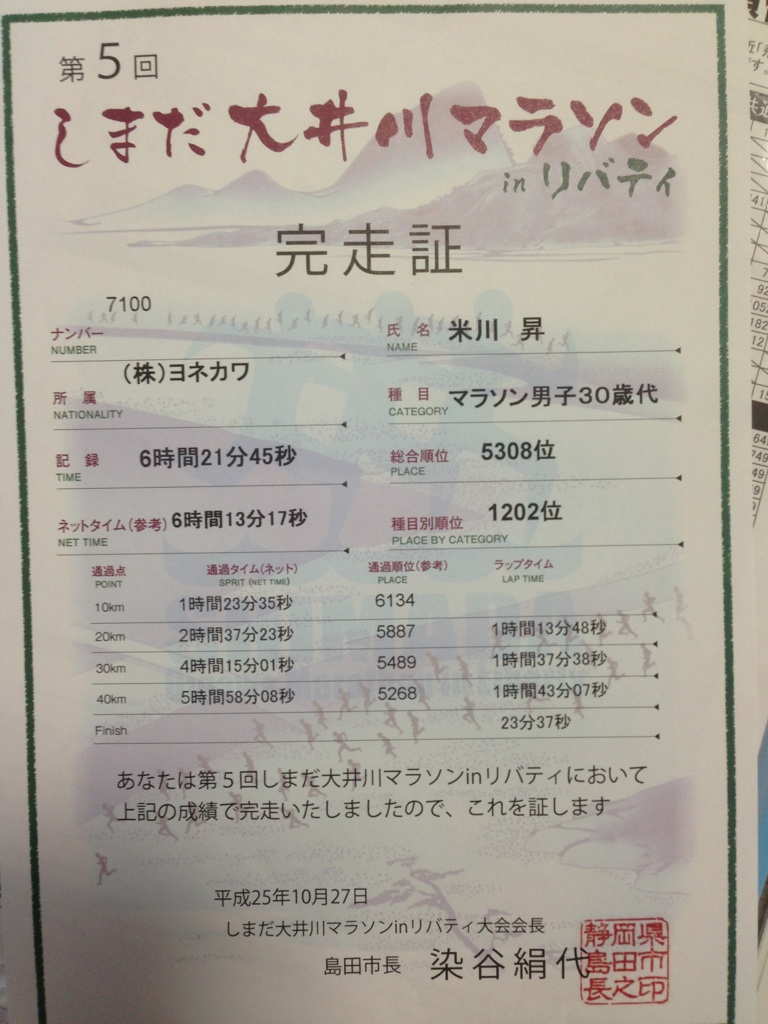 第5回
しまだ大井川マラソン
in リバティ
完走証
7100
ナンバー
NUMBER
氏 名 米川 昇
NAME
(株)ヨネカワ
所 属
NATIONALITY
種 目 マラソン男子30歳代
CATEGORY
記 録 6時間21分45秒
TIME
総合順位 5308位
PLACE
ネットタイム(参考) 6時間13分17秒
NET TIME
種目別順位 1202位
PLACE BY CATEGORY
通過点 通過タイム(ネット) 通過順位(参考) ラップタイム
POINT SPRIT (NET TIME) PLACE LAP TIME
10km 1時間23分35秒 6134
20km 2時間37分23秒 5887 1時間13分48秒
30km 4時間15分01秒 5489 1時間37分38秒
40km 5時間58分08秒 5268 1時間43分07秒
Finish 23分37秒
あなたは第5回しまだ大井川マラソンinリバティにおいて
上記の成績で完走いたしましたので、これを証します
平成25年10月27日
しまだ大井川マラソンinリバティ大会会長
島田市長 染谷絹代
静岡県
島田市
長之印